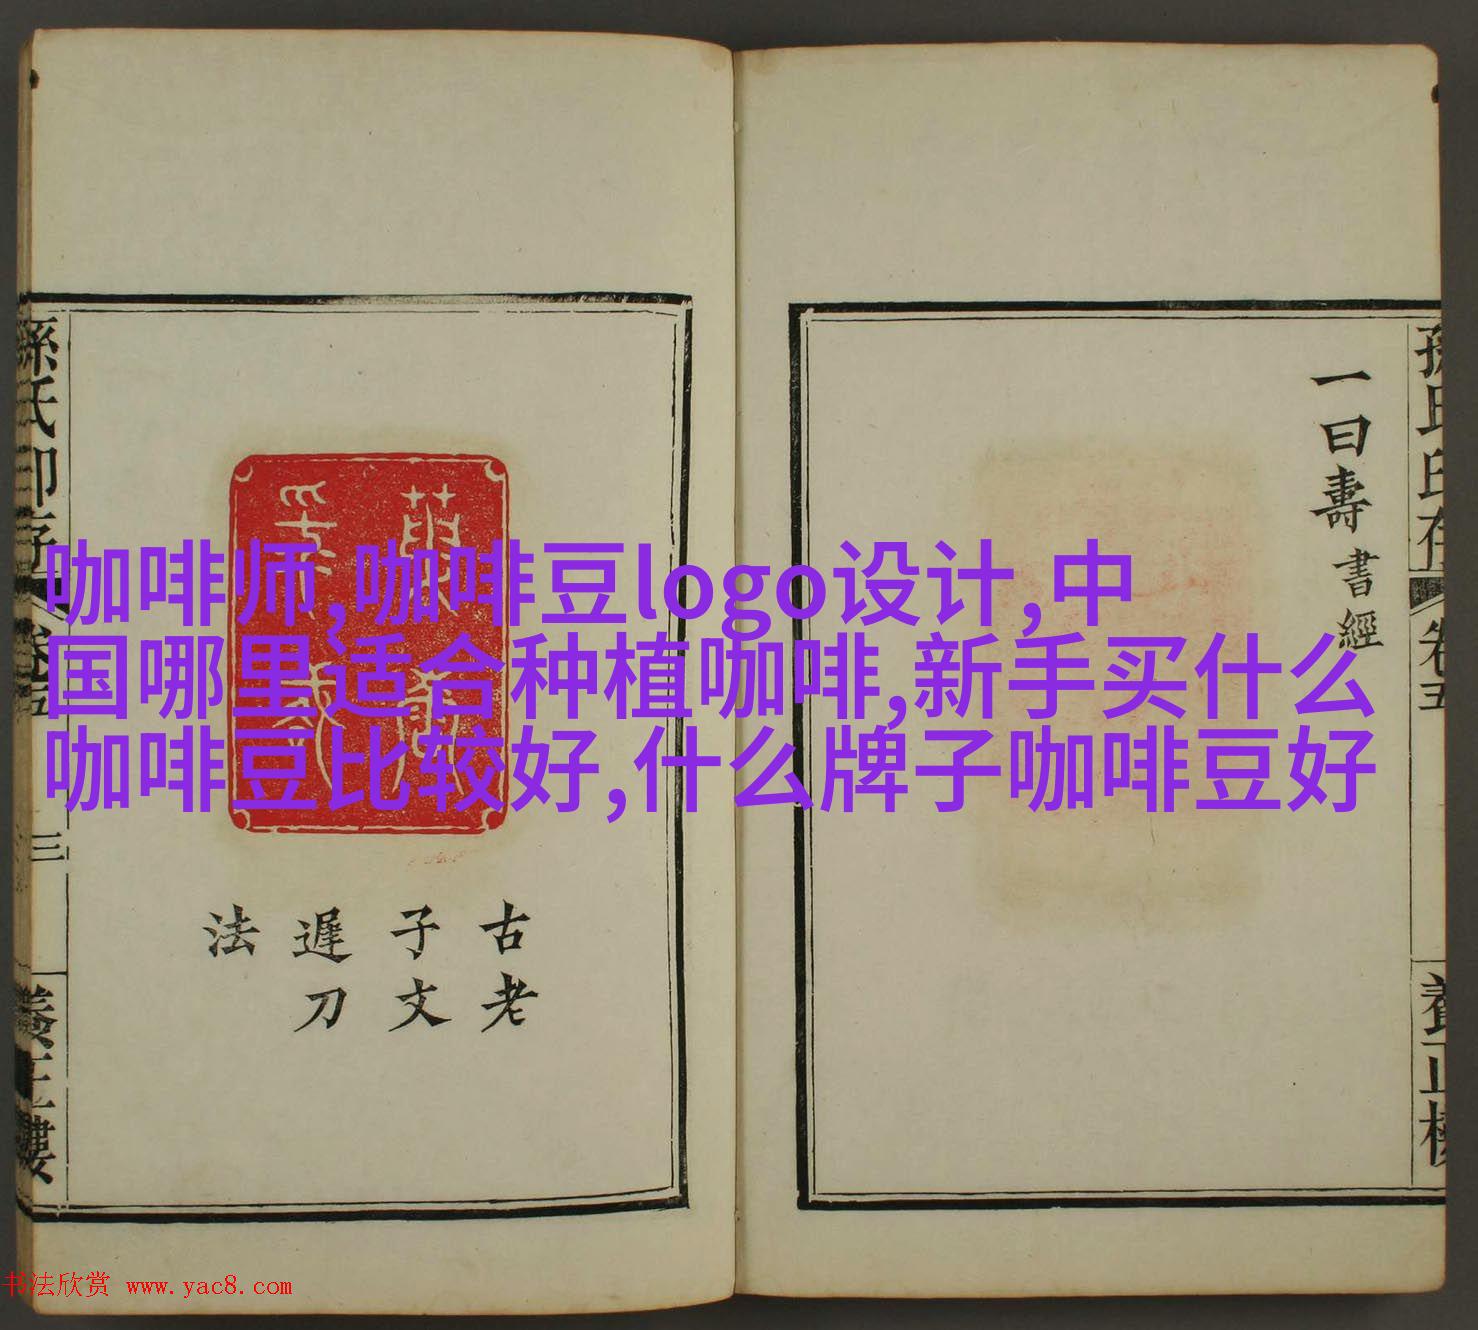 咖啡师,咖啡豆logo设计,中
国哪里适合种植咖啡,新手买什么
咖啡豆比较好,什么牌子咖啡豆好
一曰壽
書經
孫氏印存
卷五
養正樓
古老
子文
遲刀
法
孫氏印存
卷五
三
養正樓
书法欣赏 www.yac8.com